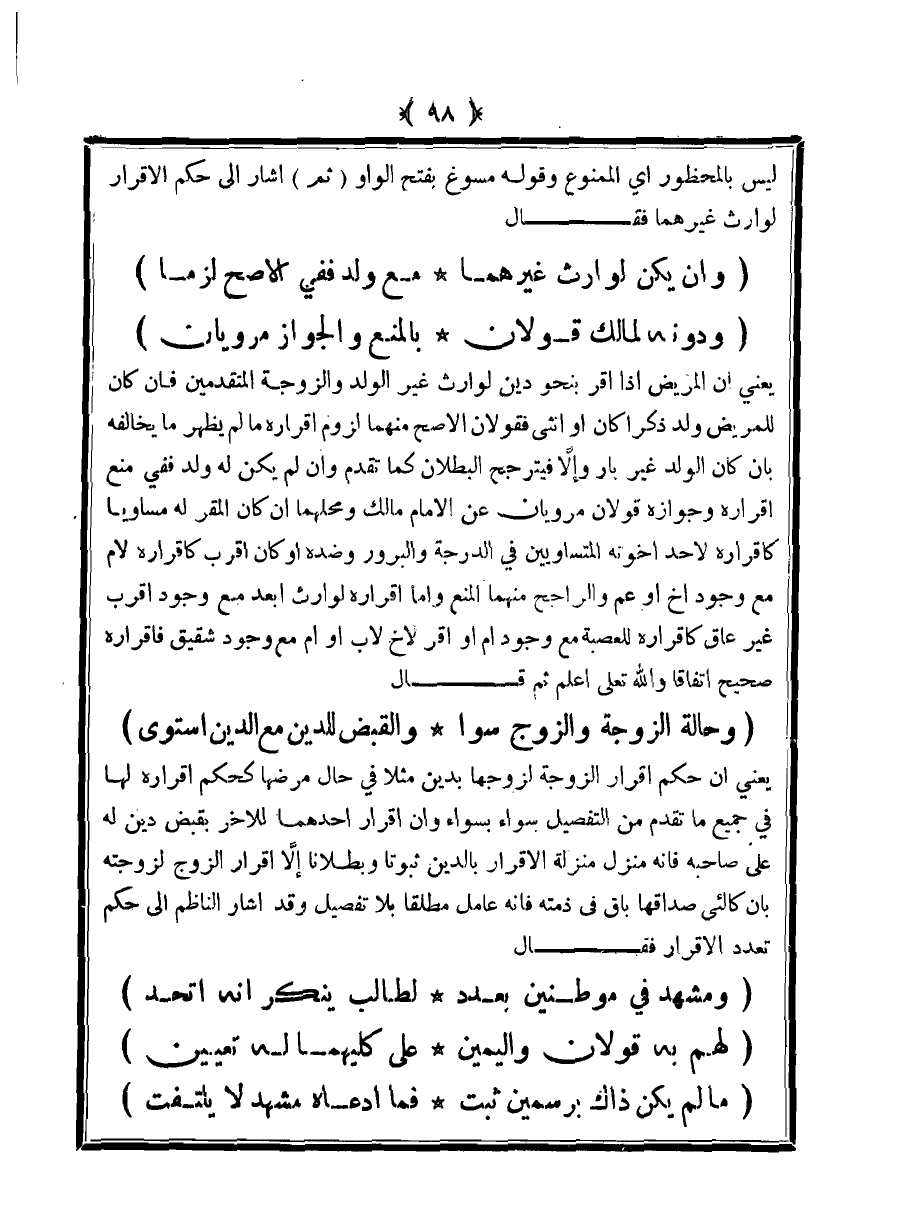 ﴿ ٩٨ ﴾
ليس بالمحظور اي الممنوع وقوله مسوغ بفتح الواو ( ثم ) اشار الى حكم الاقرار
لوارث غيرهما فقـــــــال
( وان يكن لوارث غيرهمـا * مـع ولد ففي الاصح لزمـا )
( ودونه لمالك قـولان * بالمنع والجواز مرويان )
يعني ان المريض اذا اقر بنحو دين لوارث غير الولد والزوجة المتقدمين فان كان
للمريض ولد ذكرا كان او انثى فقولان الاصح منهما لزوم اقراره ما لم يظهر ما يخالفه
بان كان الولد غير بار وإلَّا فيترجح البطلان كما تقدم وان لم يكن له ولد ففي منع
اقراره وجوازه قولان مرويان عن الامام مالك ومحلهما ان كان المقر له مساويا
كاقراره لاحد اخوته المتساويين في الدرجة والبرور وضده او كان اقرب كاقراره لام
مع وجود اخ او عم والراجح منهما المنع واما اقراره لوارث ابعد مع وجود اقرب
غير عاق كاقراره للعصبة مع وجود ام او اقر لاخ لاب او ام مع وجود شقيق فاقراره
صحيح اتفاقا والله تعلى اعلم ثم قـــــــال
( وحالة الزوجة والزوج سوا * والقبض للدين مع الدين استوى )
يعني ان حكم اقرار الزوجة لزوجها بدين مثلا في حال مرضها كحكم اقراره لها
في جميع ما تقدم من التفصيل سواء بسواء وان اقرار احدهما للاخر بقبض دين له
على صاحبه فانه منزل منزلة الاقرار بالدين ثبوتا وبطلانا إلَّا اقرار الزوج لزوجته
بان كالئى صداقها باق فى ذمته فانه عامل مطلقا بلا تفصيل وقد اشار الناظم الى حكم
تعدد الاقرار فقـــــــال
( ومشهد في موطـنين بعـدد * لطالب ينكر انه اتحـد )
( لهـم به قولان واليمين * على كليهمـا لـه تعيـين )
( ما لم يكن ذاك برسمين ثبت * فما ادعـاه مشهد لا يلتـفت )